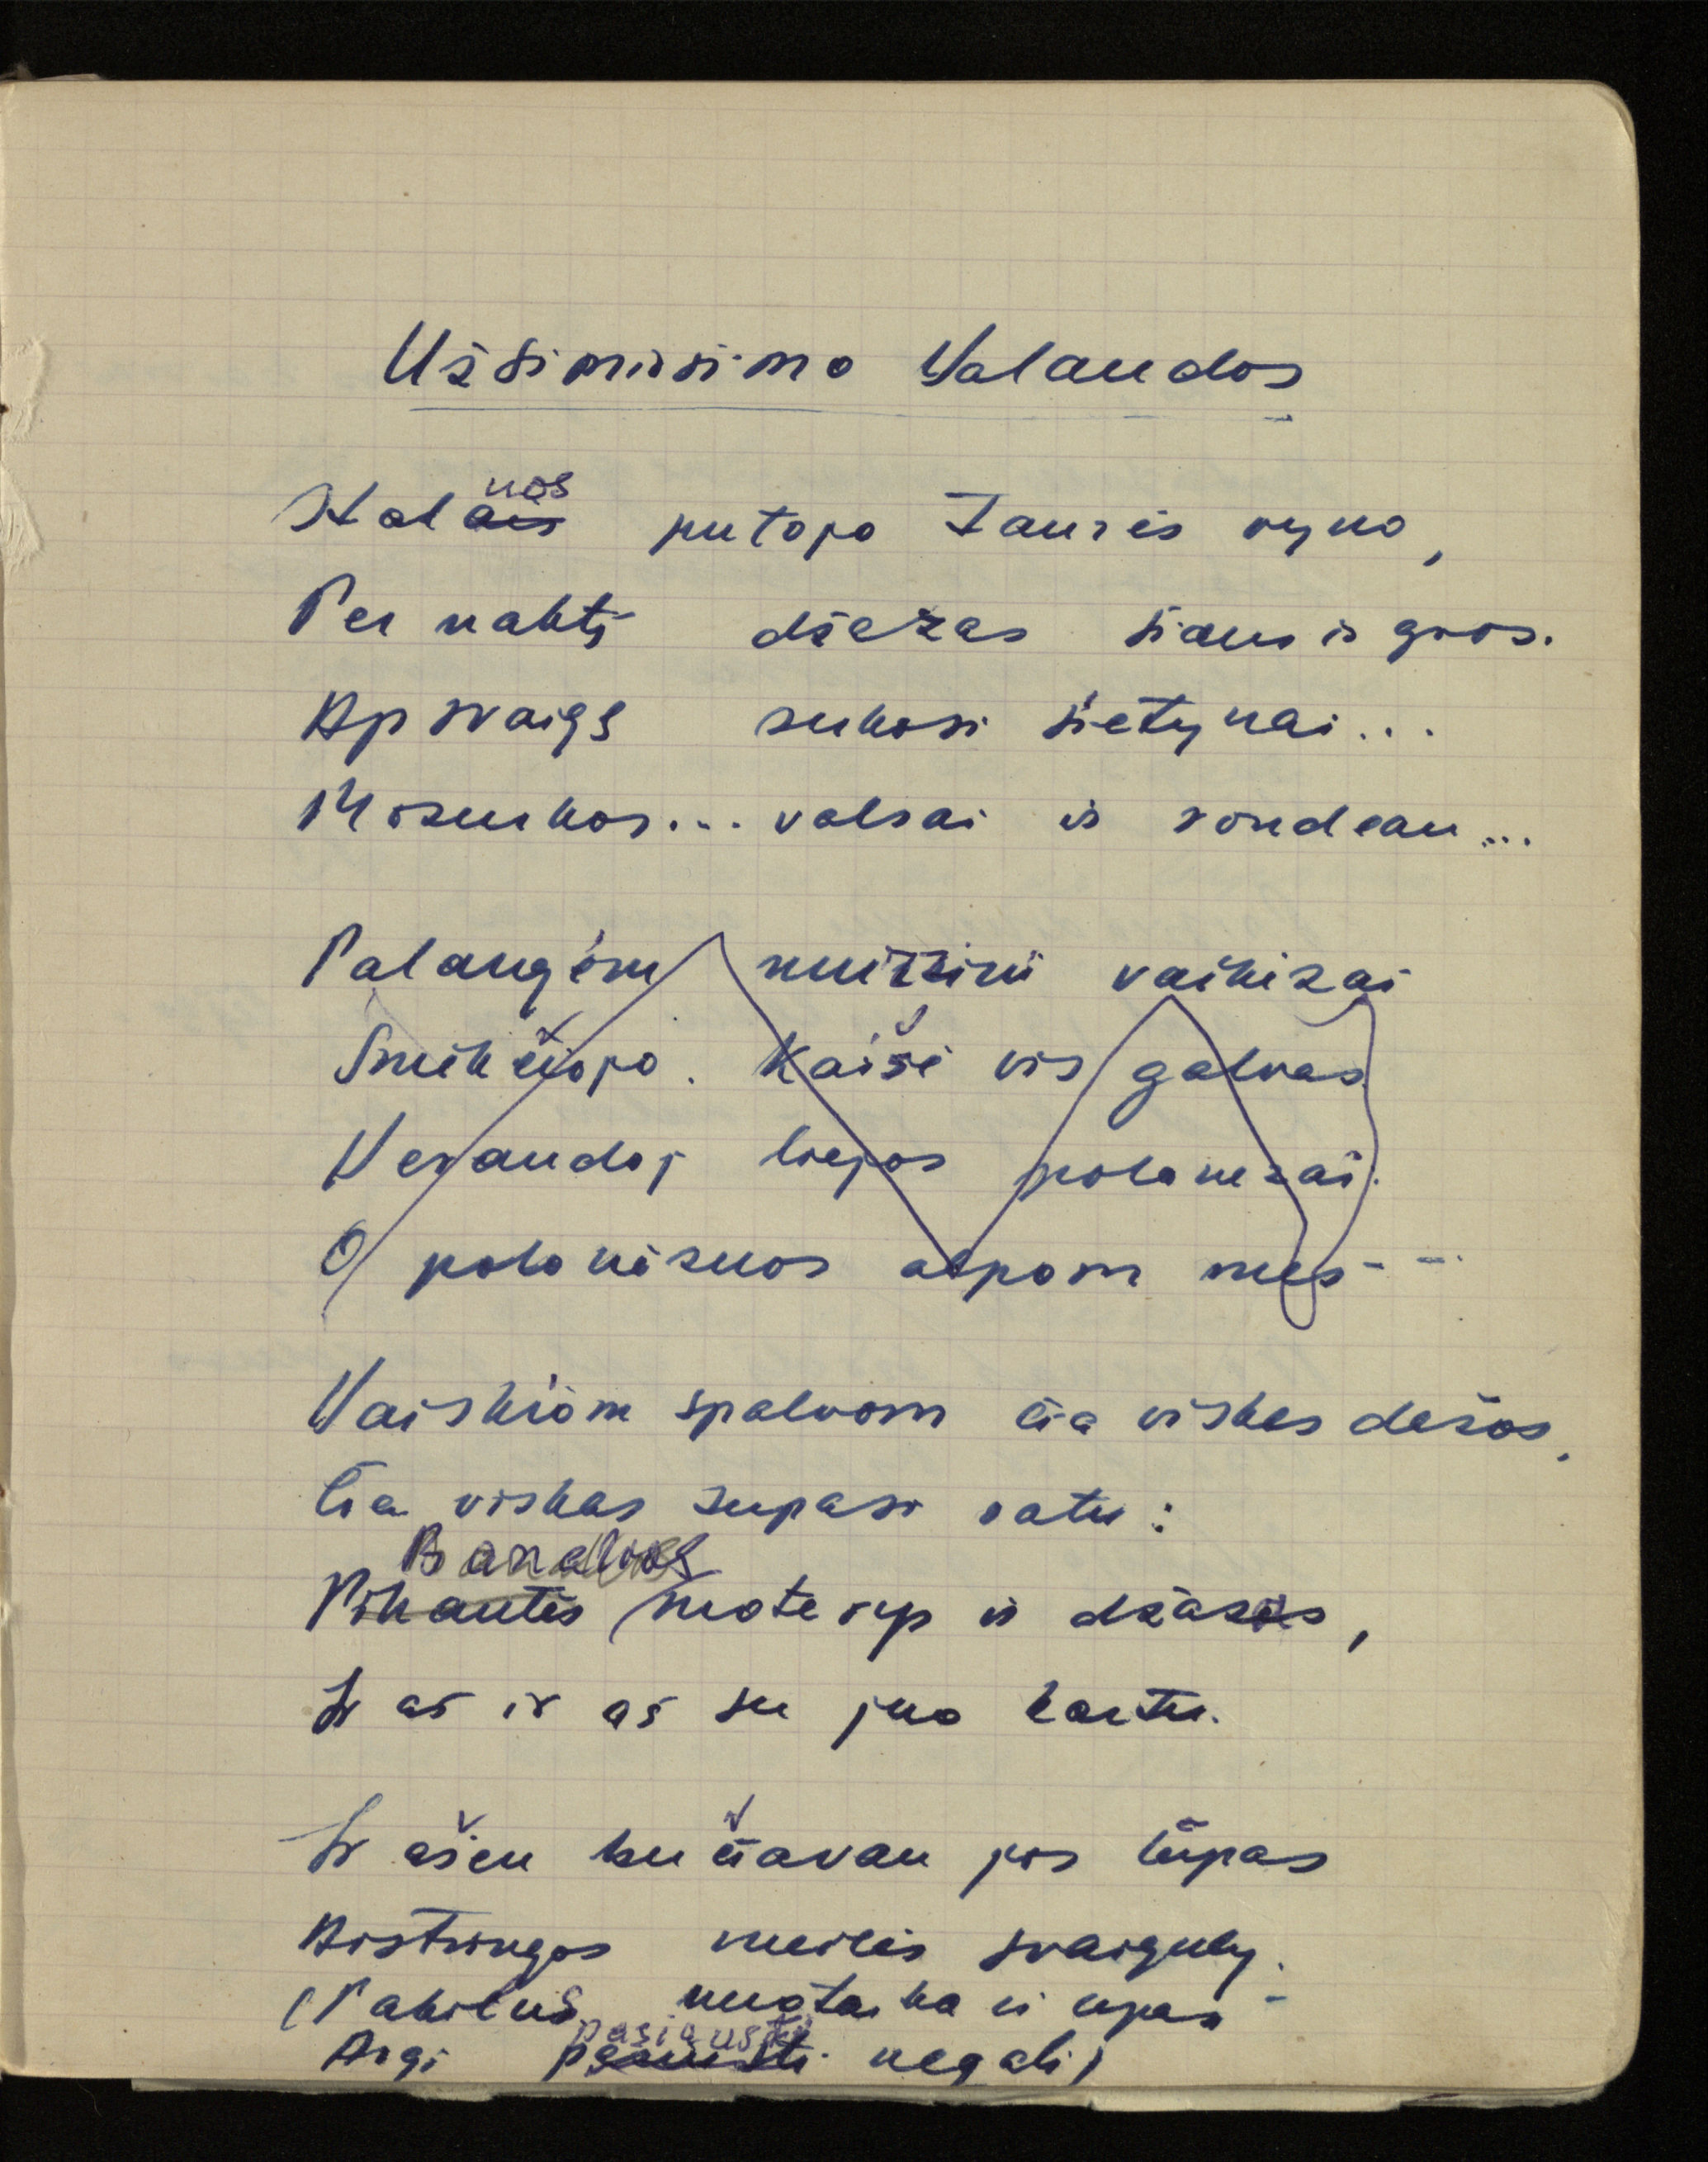 Užsimiršimo Valandos
Staluos putojo Taurės vyno,
Per naktį džazas siaus ir gros.
Apsvaigę sukosi sietynai...
Mozurkos... valsai ir rondeau...
Palangėm muzzinii vaikizai
Smikčiojo. Kaišė vis galvas
Verandoj liejos polonezai.
O polonizuos alpom mes - -
Vaiskiom spalvom čia viskas dažos,
Čia viskas supasi ratu:
Banalios
Pikantės moterys ir džazas,
Ir aš ir aš su juo kartu.
Ir ašen bučiavau jos lūpas
Aistringos meilės svaiguly.
(Pakilus nuotaika ir ūpas -
pasigusti
Argi negali)